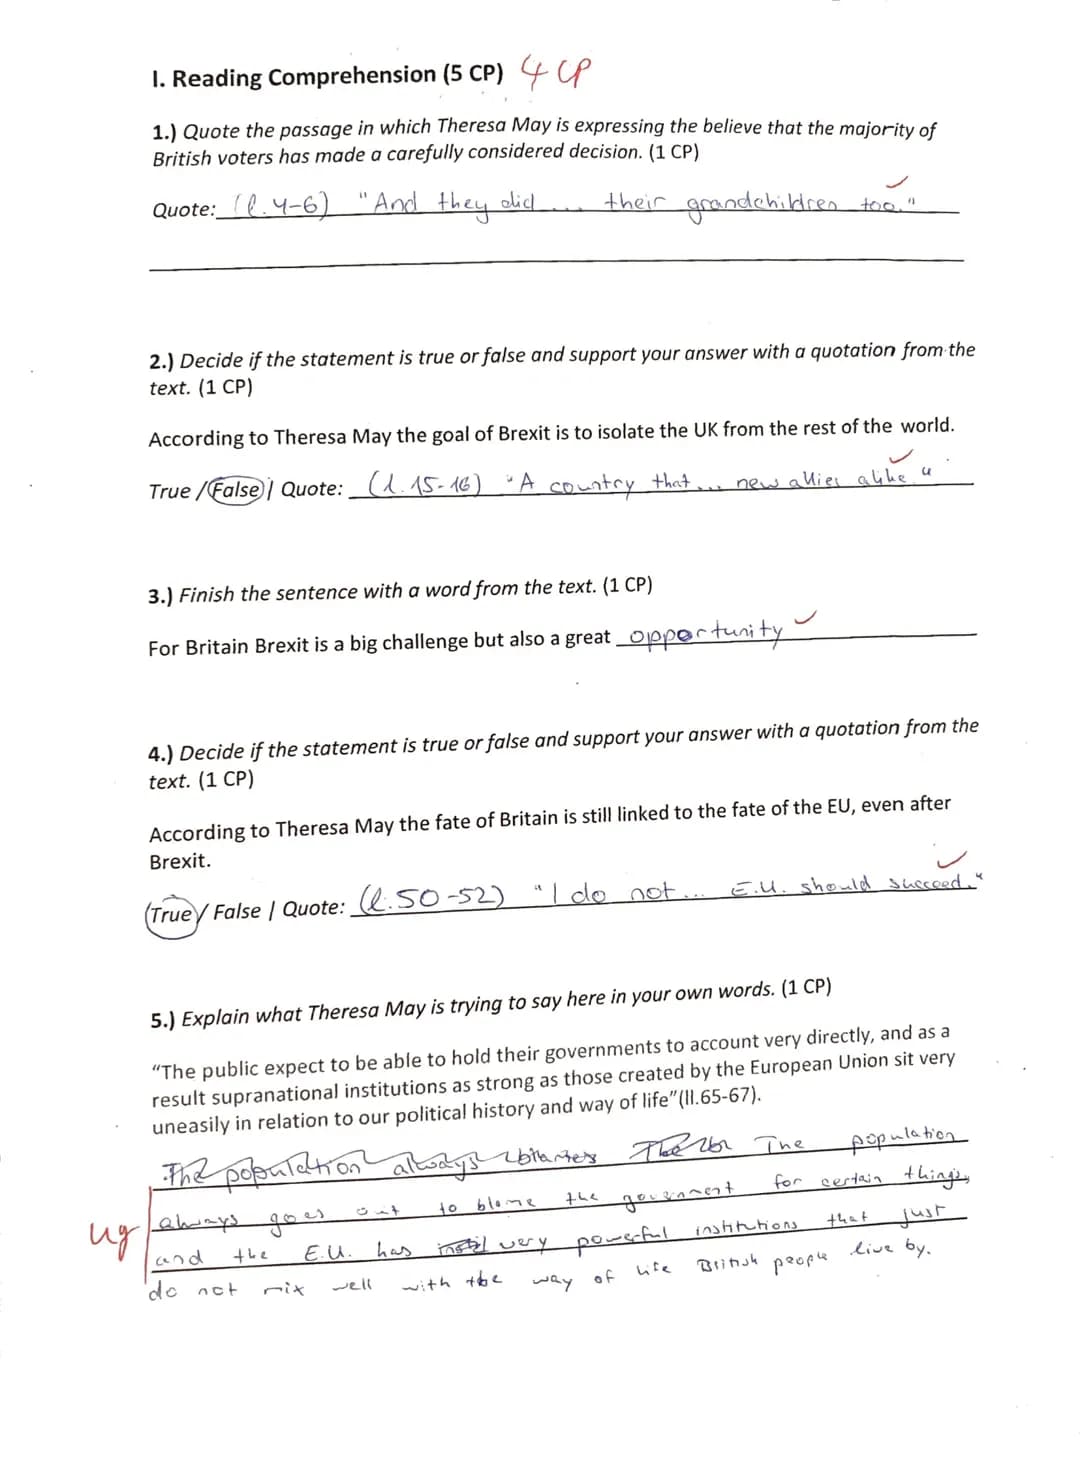 I. Reading Comprehension (5 CP) 4 CP
1.) Quote the passage in which Theresa May is expressing the believe that the majority of
British voters has made a carefully considered decision. (1 CP)
Quote: (l. 4-6) "And they did ... their grandchildren too." ✓
2.) Decide if the statement is true or false and support your answer with a quotation from the
text. (1 CP)
According to Theresa May the goal of Brexit is to isolate the UK from the rest of the world.
True / False | Quote: (l. 15-16) "A country that ... new allies alike" ✓
3.) Finish the sentence with a word from the text. (1 CP)
For Britain Brexit is a big challenge but also a great opportunity ✓
4.) Decide if the statement is true or false and support your answer with a quotation from the
text. (1 CP)
According to Theresa May the fate of Britain is still linked to the fate of the EU, even after
Brexit.
True / False | Quote: (l. 50-52) "I do not ... E.U. should succeed." ✓
5.) Explain what Theresa May is trying to say here in your own words. (1 CP)
"The public expect to be able to hold their governments to account very directly, and as a
result supranational institutions as strong as those created by the European Union sit very
uneasily in relation to our political history and way of life"(ll.65-67).
The population always The The population
ug always goes out to blame the government for certain things,
and the E.U. has very powerful institutions that just
do not mix well with the way of life British people live by.